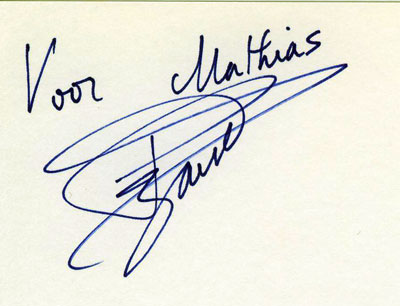 Voor Mathias